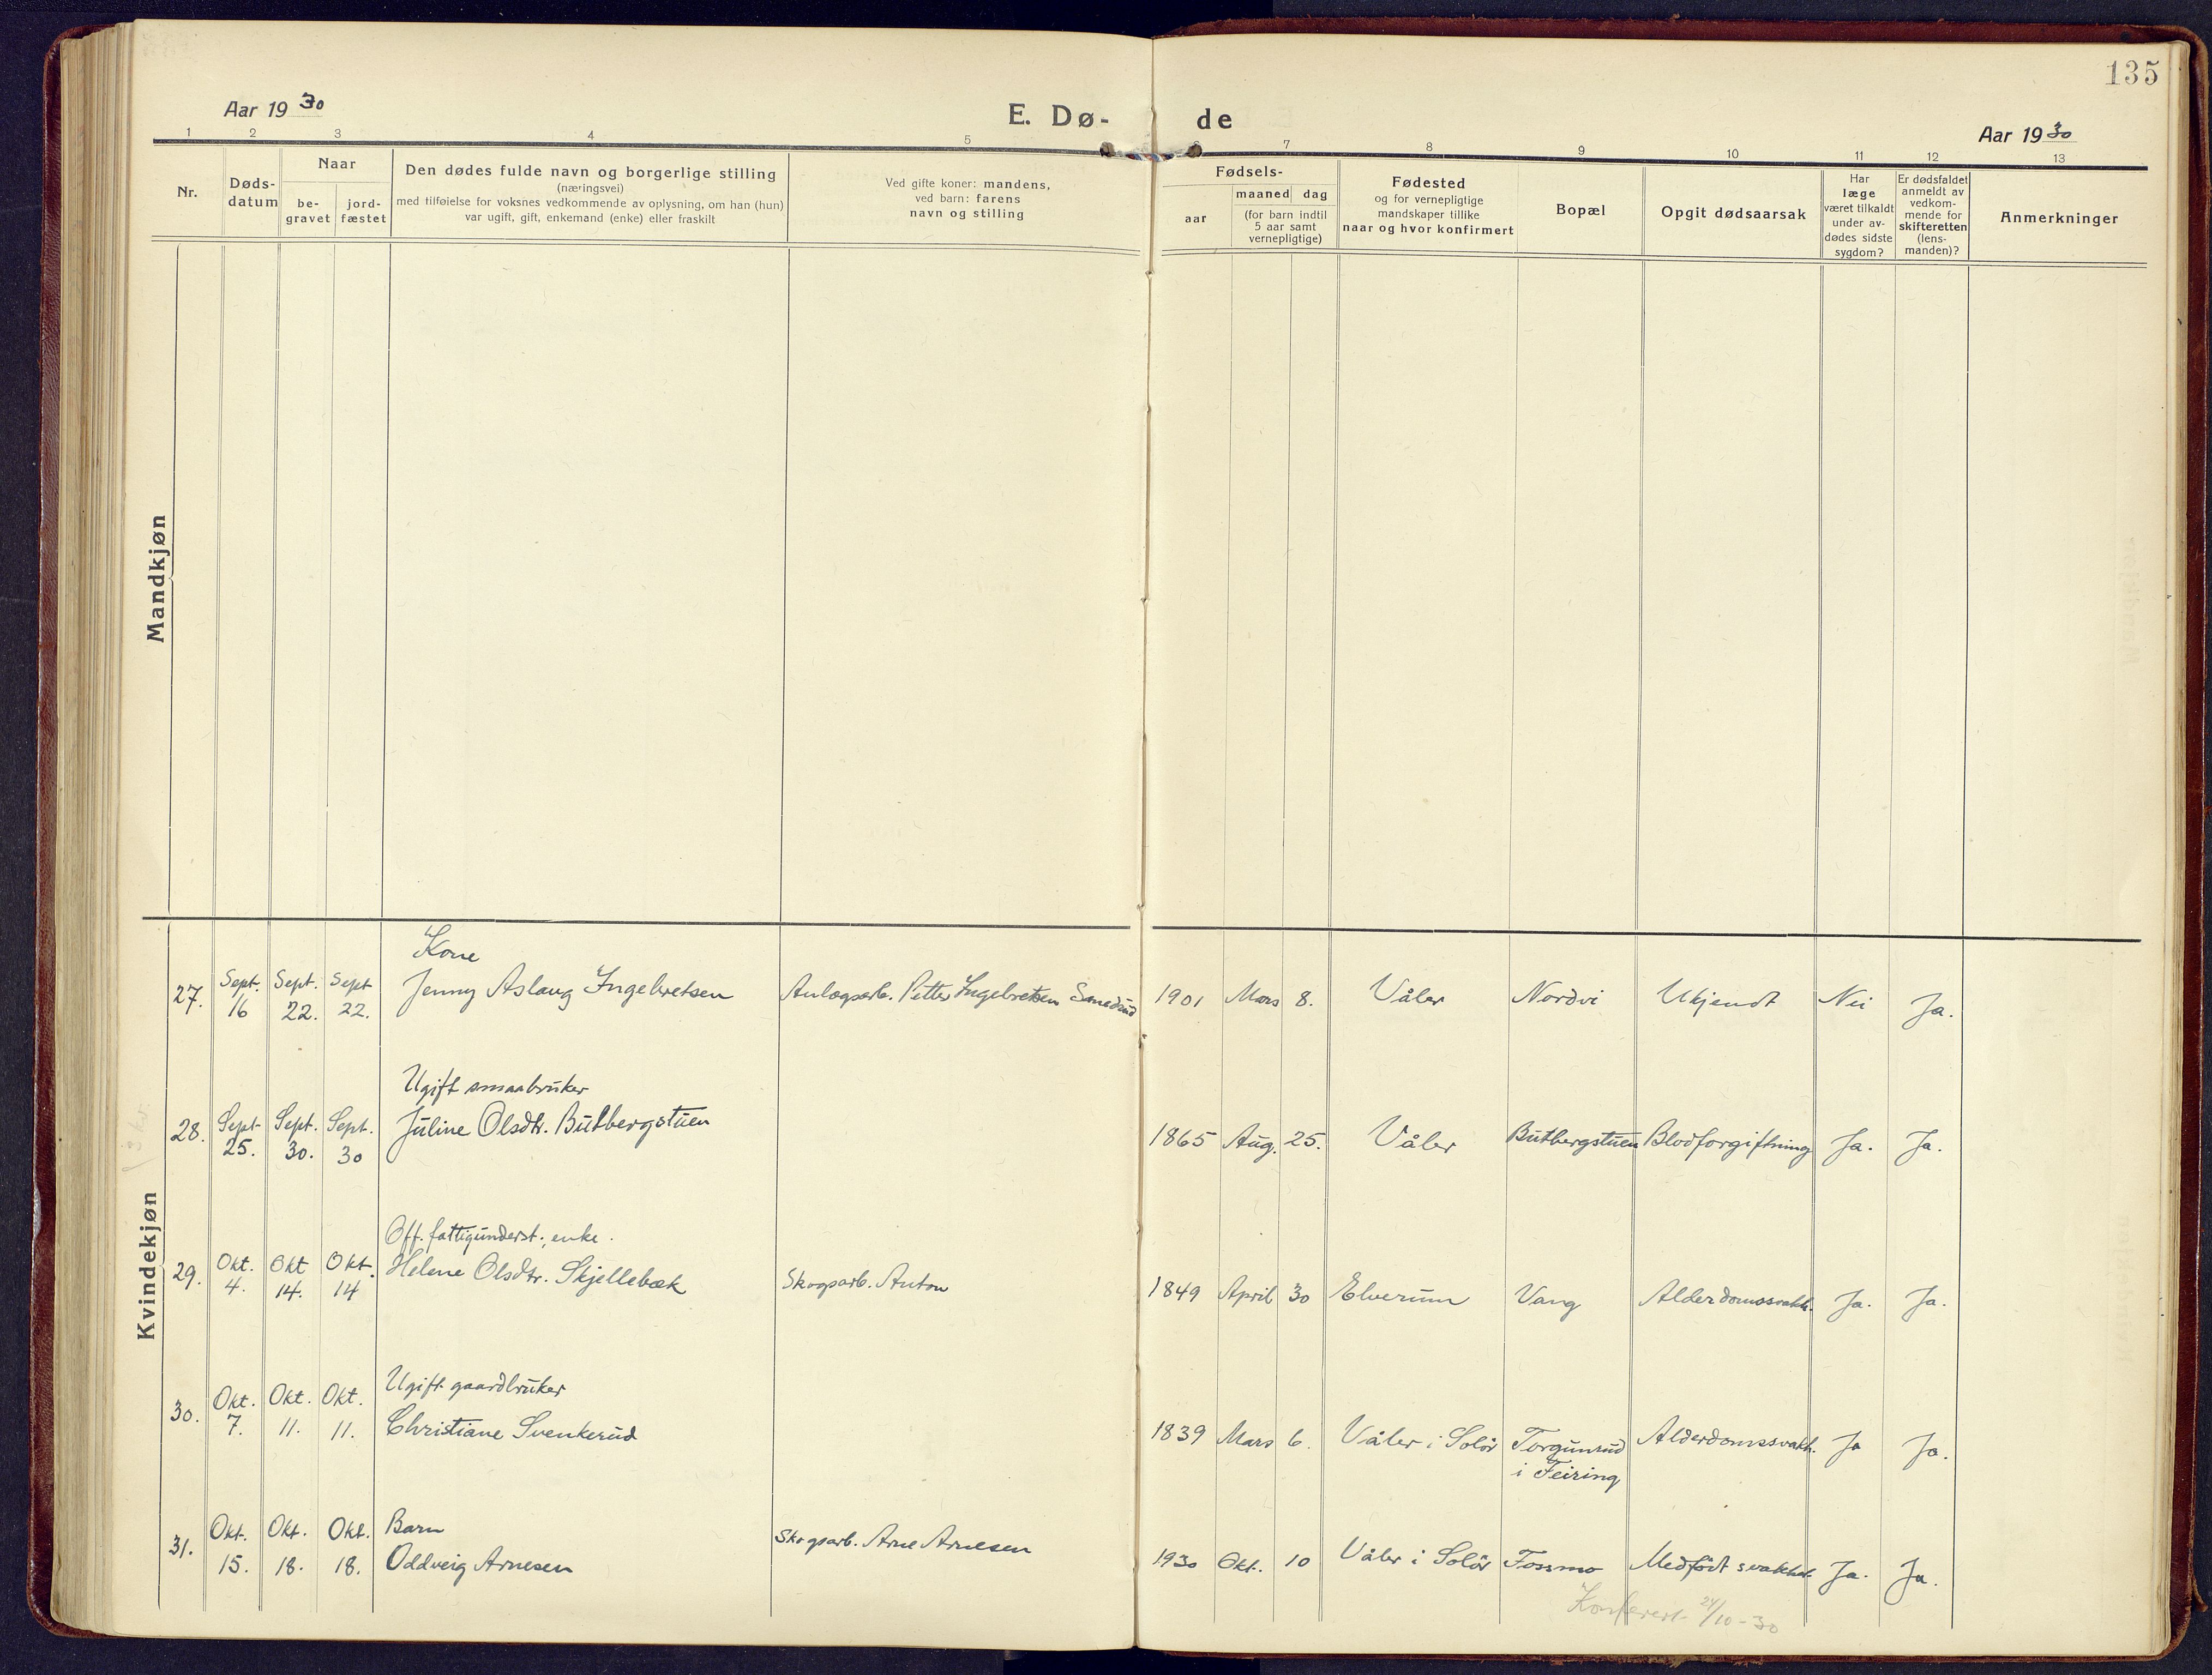 135
Aar 1930
E. Dø-
de
Aar 1930
1 2 3 4 5 6 7 8 9 10 11 12 13
Nr.
Døds-
datum
Naar
be-
gravet
jord-
fæstet
Den dødes fulde navn og borgerlige stilling
(næringsvei)
med tilføielse for voksnes vedkommende av oplysning, om han (hun)
var ugift, gift, enkemand (enke) eller fraskilt
Ved gifte koner: mandens,
ved barn: farens
navn og stilling
Fødsels-
aar
maaned dag
(for barn indtil
5 aar samt
vernepligtige)
Fødested
og for vernepligtige
mandskaper tillike
naar og hvor konfirmert
Bopæl
Opgit dødsaarsak
Har
læge
været tilkaldt
under av-
dødes sidste
sygdom?
Er dødsfaldet
anmeldt av
vedkom-
mende for
skifteretten
(lens-
manden)?
Anmerkninger
Mandkjøn
Kvindekjøn
Kone
27. Sept. 16 Sept. 22. Sept 22. Jenny Aslaug Ingebretsen Anlægsarb. Petter Ingebretsen 1901 Mars 8. Våler Nordvi Ukjendt Nei Ja.
Ugift smaabruker
28. Sept. 25. Sept. 30. Sept. 30 Juline Olsdtr. Butbergstuen 1865 Aug. 25. Våler Butbergstuen Blodforgiftning Ja. Ja.
Off. fattigunderst., enke.
29. Okt. 4. Okt 14. Okt. 14 Helene Olsdtr. Skjellebæk Skogsarb. Anton 1849 April 30 Elverum Vang Alderdomssvakh. Ja. Ja.
Ugift gaardbruker
30. Okt. 7. Okt. 11. Okt. 11. Christiane Svenkerud 1839 Mars 6. Våler i Solør Torgunrud Alderdomssvakh. Ja Ja.
i Feiring
Barn
31. Okt. 15. Okt. 18. Okt. 18. Oddveig Arnesen Skogsarb. Arne Arnesen 1930 Okt. 10 Våler i Solør Fossmo Medfødt svakhet Ja. Ja.
Konferert 24/10-30